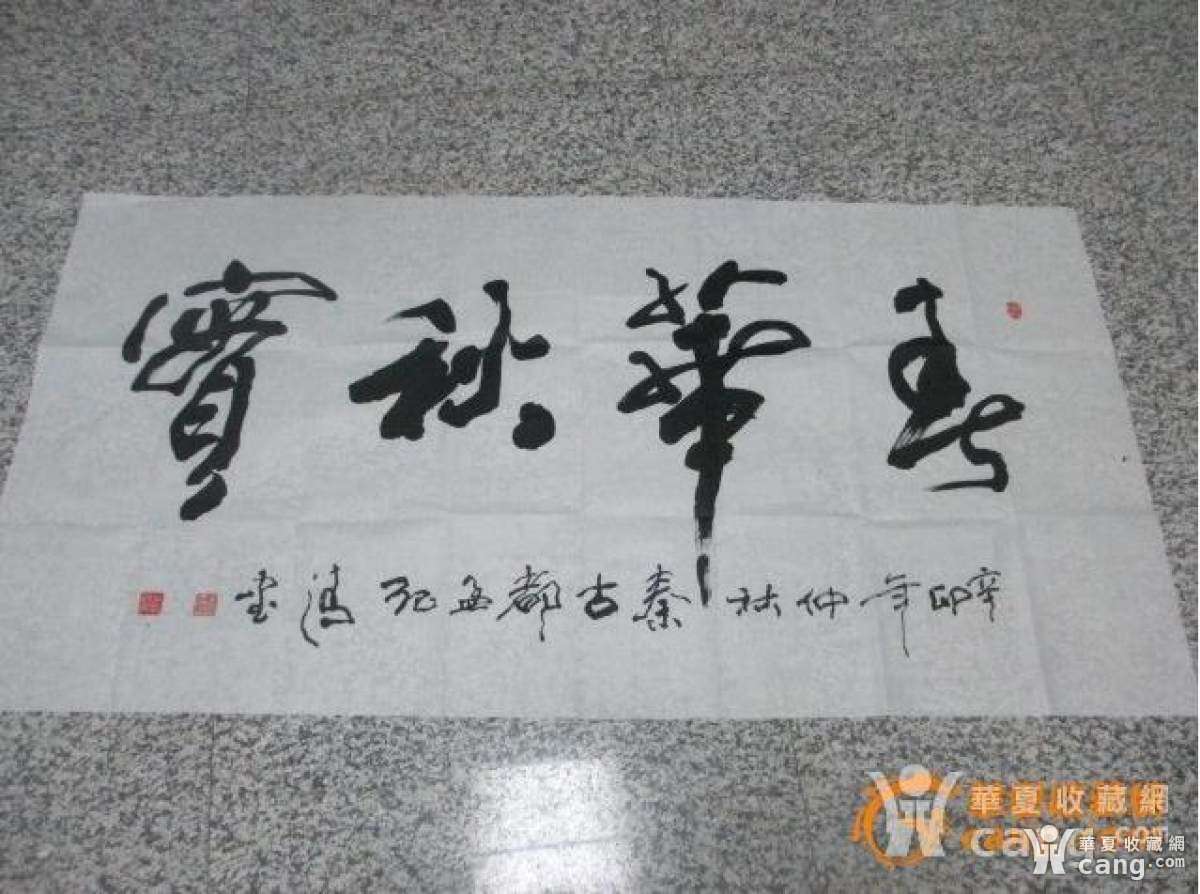 春華秋實
辛卯年仲秋秦古都孟紀濤書
華夏收藏網
cang.com
華夏收藏網
cang.com